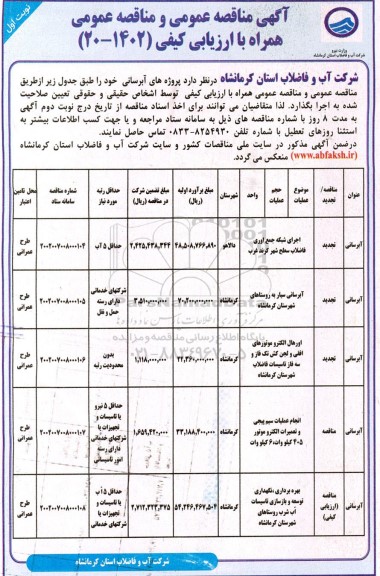 نوبت اول
آگهی مناقصه عمومی و مناقصه عمومی
همراه با ارزیابی کیفی (۱۴۰۲-۲۰)
وزارت نیرو
شرکت آب و فاضلاب استان کرمانشاه
شرکت آب و فاضلاب استان کرمانشاه درنظر دارد پروژه های آبرسانی خود را طبق جدول زیر ازطریق
مناقصه عمومی و مناقصه عمومی همراه با ارزیابی کیفی توسط اشخاص حقیقی و حقوقی تعیین صلاحیت
شده به اجرا بگذارد. لذا متقاضیان می توانند برای اخذ اسناد مناقصه از تاریخ درج نوبت دوم آگهی
به مدت ۸ روز با شماره مناقصه های ذیل به سامانه ستاد مراجعه و یا جهت کسب اطلاعات بیشتر به
استثنا روزهای تعطیل با شماره تلفن ۸۲۵۴۹۳۰-۰۸۳۳ تماس حاصل نمایند.
درضمن آگهی مذکور در سایت ملی مناقصات کشور و سایت شرکت آب و فاضلاب استان کرمانشاه
(www.abfaksh.ir) منعکس می گردد.
عنوان | مناقصه/ تجدید | موضوع عملیات | حجم عملیات | واحد | شهرستان | مبلغ برآورد اولیه (ریال) | مبلغ تضمین شرکت در مناقصه (ریال) | حداقل رتبه مورد نیاز | شماره مناقصه سامانه ستاد | محل تامین اعتبار
آبرسانی | تجدید | اجرای شبکه جمع آوری فاضلاب سطح شهر کرند غرب | دالاهو | ۴۸,۵۰۸,۷۶۶,۸۹۰ | ۲,۴۲۵,۴۳۸,۳۴۴ | حداقل ۵ آب | طرح عمرانی
آبرسانی | تجدید | آبرسانی سیار به روستاهای شهرستان کرمانشاه | کرمانشاه | شرکتهای خدماتی دارای رسته حمل و نقل | ۲۰۰۲۰۰۷۰۰۸۰۰۰۱۰۵ | طرح عمرانی
آبرسانی | تجدید | اورهال الکترو موتورهای افقی و لجن کش تک فاز و سه فاز تاسیسات فاضلاب شهرستان کرمانشاه | کرمانشاه | ۲۲,۳۶۰,۰۰۰,۰۰۰ | ۱,۱۱۸,۰۰۰,۰۰۰ | بدون محدودیت رتبه | ۲۰۰۲۰۰۷۰۰۸۰۰۰۱۰۶ | طرح عمرانی
آبرسانی | مناقصه | انجام عملیات سیم پیچی و تعمیرات الکترو موتور | کرمانشاه | ۳۳,۱۸۸,۴۰۰,۰۰۰ | ۱,۶۵۹,۴۲۰,۰۰۰ | حداقل ۵ نیرو یا تاسیسات و تجهیزات یا شرکتهای خدماتی دارای رسته امور تاسیساتی | ۲۰۰۲۰۰۷۰۰۸۰۰۰۱۰۷ | طرح عمرانی
آبرسانی | مناقصه (ارزیابی کیفی) | بهره برداری ،نگهداری توسعه و بازسازی تاسیسات آب شرب روستاهای شهرستان کرمانشاه | کرمانشاه | ۵۴,۲۴۶,۴۶۷,۵۰۴ | ۲,۷۱۲,۳۲۳,۳۷۵ | حداقل ۵ آب یا تاسیسات و تجهیزات یا شرکتهای خدماتی | ۲۰۰۲۰۰۷۰۰۸۰۰۰۱۰۸ | طرح عمرانی
پایگاه اطلاع رسانی مناقصه و مزایده
۰۲۱-۸۸۳۴۹۶۷۰-۵
شرکت آب و فاضلاب استان کرمانشاه